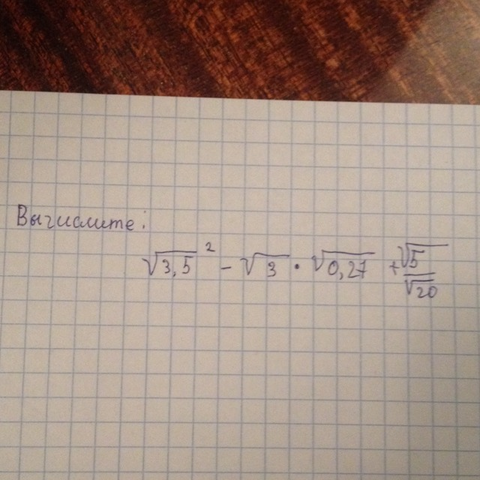 Вычислите:
√3,5² - √3 · √0,27 + √5/√20